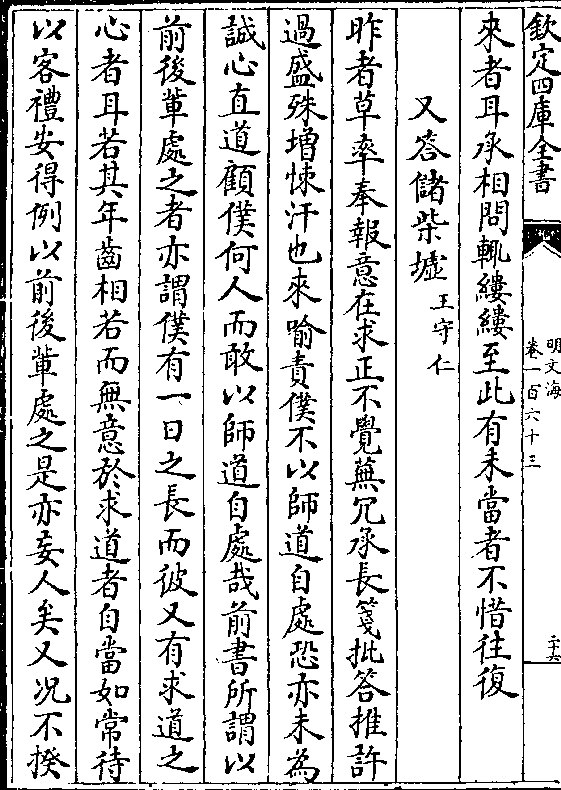 欽定四庫全書
明文海
卷一百六十三
二十六
來者耳承相問輒縷縷至此有未當者不惜往復
又答儲柴墟 王守仁
昨者草率奉報意在求正不覺蕪冗承長箋批答推許
過盛殊增悚汗也來喻責僕不以師道自處恐亦未為
誠心直道顧僕何人而敢以師道自處哉前書所謂以
前後輩處之者亦謂僕有一日之長而彼又有求道之
心者耳若其年齒相若而無意於求道者自當如常待
以客禮安得例以前後輩處之是亦妄人矣又况不揆